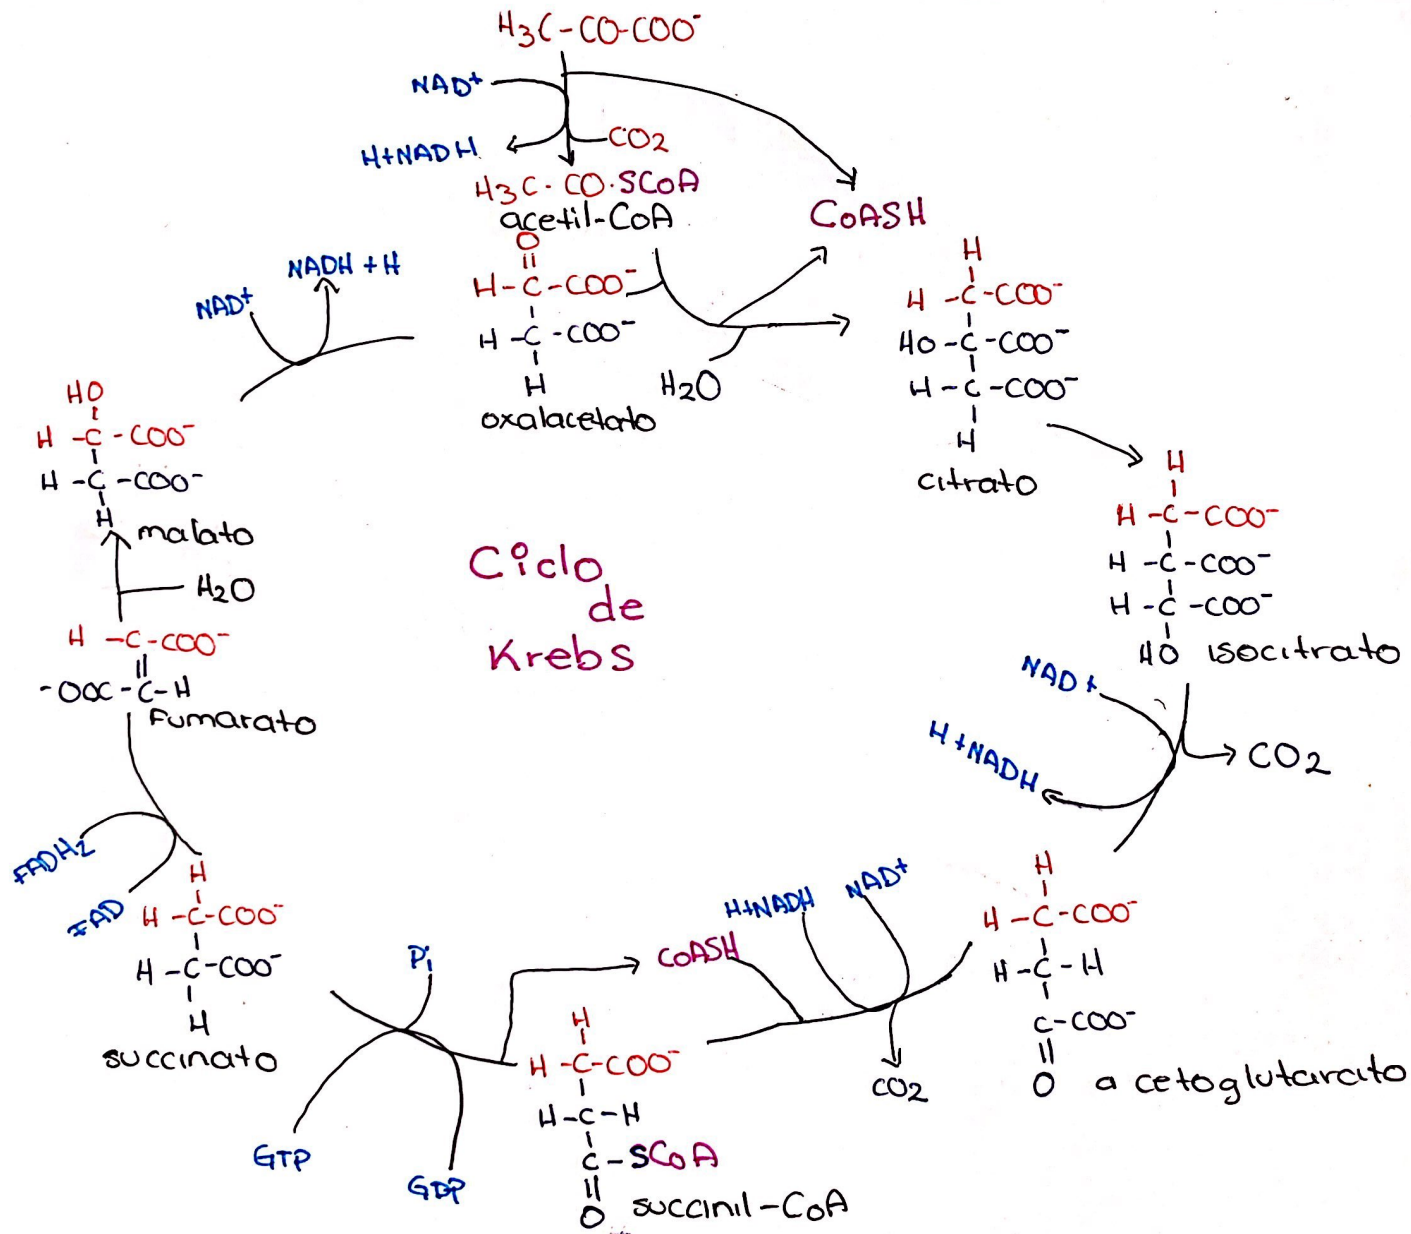 H3C-CO-COO-
NAD+
H+NADH
CO2
H3C·CO·SCoA
acetil-CoA
CoASH
O
H-C-COO-
H-C-COO-
H
oxalacetato
H2O
NADH+H
NAD+
H
H-C-COO-
HO-C-COO-
H-C-COO-
H
citrato
H
H-C-COO-
H-C-COO-
H-C-COO-
HO
isocitrato
NAD+
H+NADH
CO2
H
H-C-COO-
H-C-H
C-COO-
O
a cetoglutarato
NAD+
H+NADH
CoASH
CO2
H
H-C-COO-
H-C-H
C-SCoA
O
succinil-CoA
Pi
GTP
GDP
H
H-C-COO-
H-C-COO-
H
succinato
FADH2
FAD
H-C-COO-
-OOC-C-H
Fumarato
H2O
HO
H-C-COO-
H-C-COO-
H
malato
Ciclo
de
Krebs